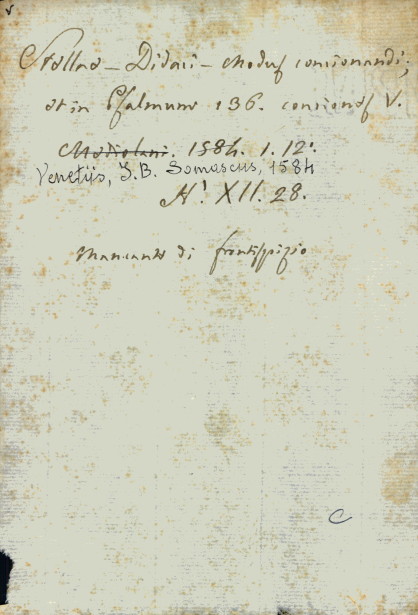 Stellae - Didaci - Modus concionandi;
et in Psalmum 136. conciones V.
Mediolani. 1584. 1. 12°.
Venetiis, J.B. Somascus, 1584
N.! XII. 28.
mancante di frontispizio
C